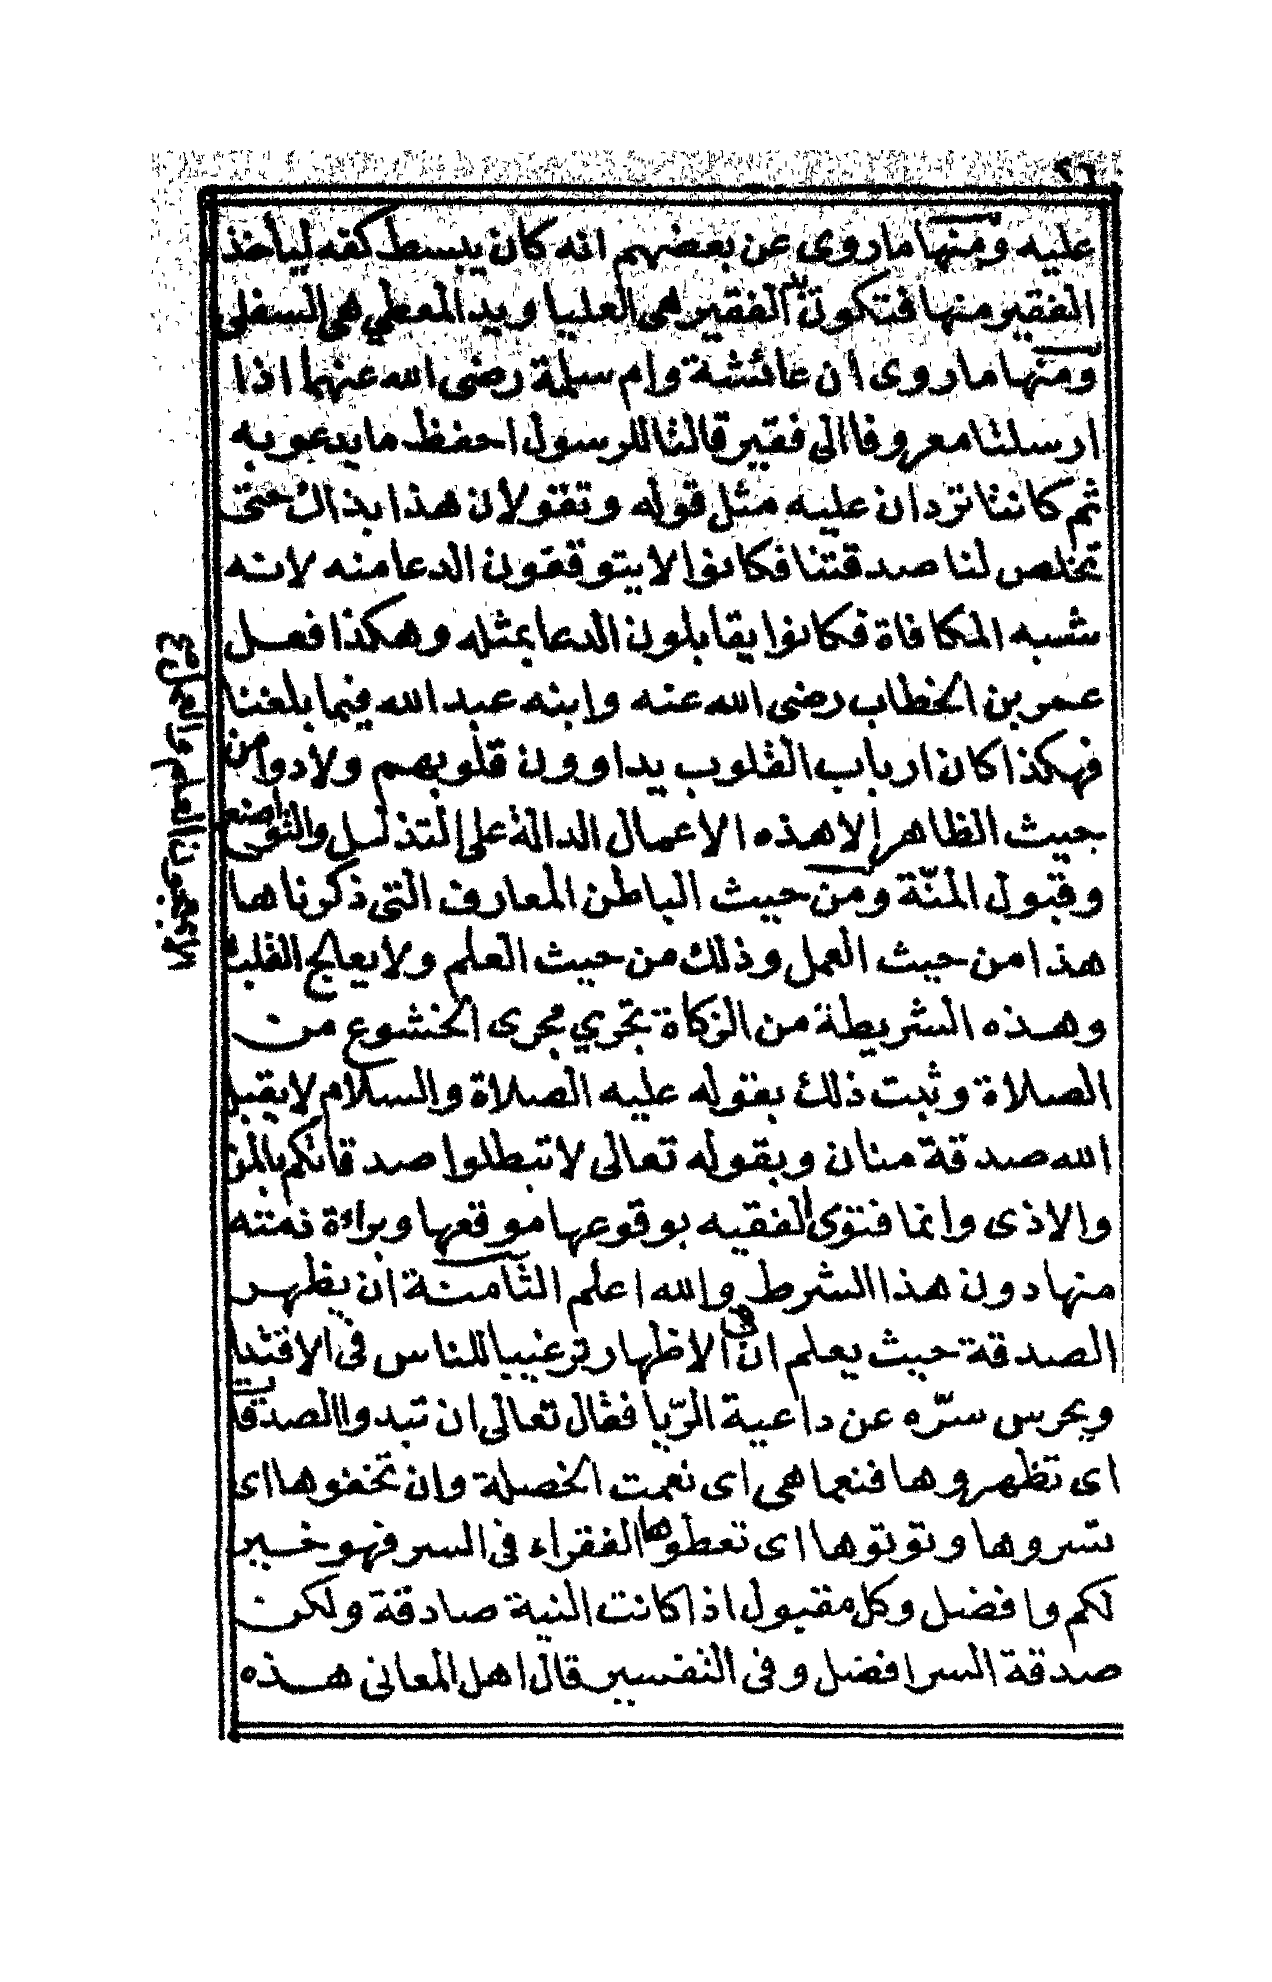 عليه ومنها ماروى عن بعضهم انه كان يبسط كفه لياخذ
الفقير منها فتكون يد الفقير هى العليا ويد المعطي هى السفلى
ومنها ماروى ان عائشة وام سلمة رضى الله عنهما اذا
ارسلتا معروفا الى فقير قالتا للرسول احفظ ما يدعو به
ثم كانتا تردان عليه مثل قوله وتقولان هذا بذاك حتى
تخلص لنا صدقتنا فكانوا لا يتوقعون الدعا منه لانه
شبه المكافاة فكانوا يقابلون الدعا بمثله وهكذا فعل
عمر بن الخطاب رضى الله عنه وابنه عبد الله فيما بلغنا
فهكذا كان ارباب القلوب يداوون قلوبهم ولا دوا من
حيث الظاهر الا هذه الاعمال الدالة على التذلل والتواضع
وقبول المنّة ومن حيث الباطن المعارف التى ذكرناها
هذا من حيث العمل وذلك من حيث العلم ولا يعالج القلب
الا بمعجون العلم والعمل مع
وهذه الشريطة من الزكاة تجري مجرى الخشوع من
الصلاة وثبت ذلك بقوله عليه الصلاة والسلام لا يقبل
الله صدقة منان وبقوله تعالى لا تبطلوا صدقاتكم بالمن
والاذى وانما فتوى الفقيه بوقوعها موقعها وبراءة ذمته
منها دون هذا الشرط والله اعلم الثامنة ان يظهر
الصدقة حيث يعلم ان فى الاظهار ترغيبا للناس فى الاقتدا
ويحرس سرّه عن داعية الرّيا فقال تعالى ان تبدوا الصدقات
اى تظهروها فنعما هى اى نعمت الخصلة وان تخفوها اى
تسروها وتوتوها اى تعطوها الفقراء فى السر فهو خير
لكم وافضل وكل مقبول اذا كانت النية صادقة ولكن
صدقة السر افضل وفى التفسير قال اهل المعانى هذه